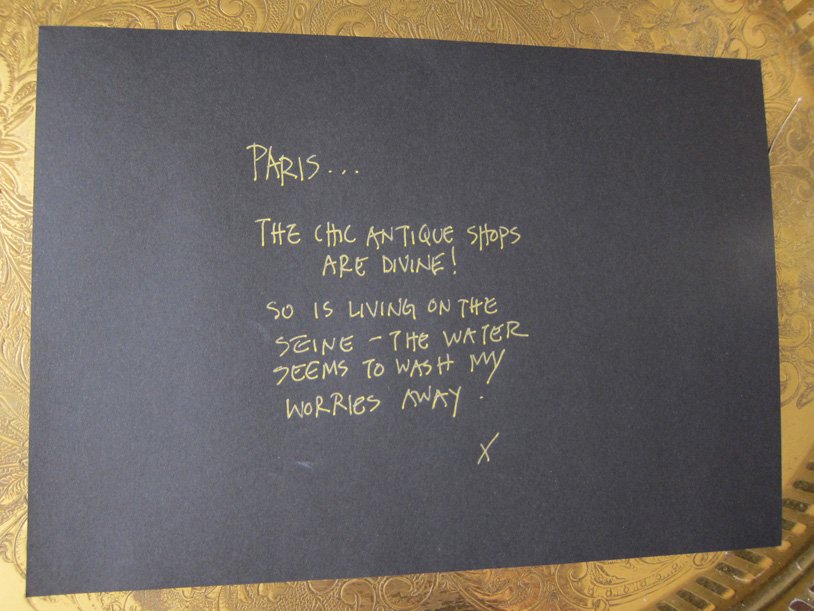 PARIS...
THE CHIC ANTIQUE SHOPS
ARE DIVINE!
SO IS LIVING ON THE
SEINE – THE WATER
SEEMS TO WASH MY
WORRIES AWAY.
X